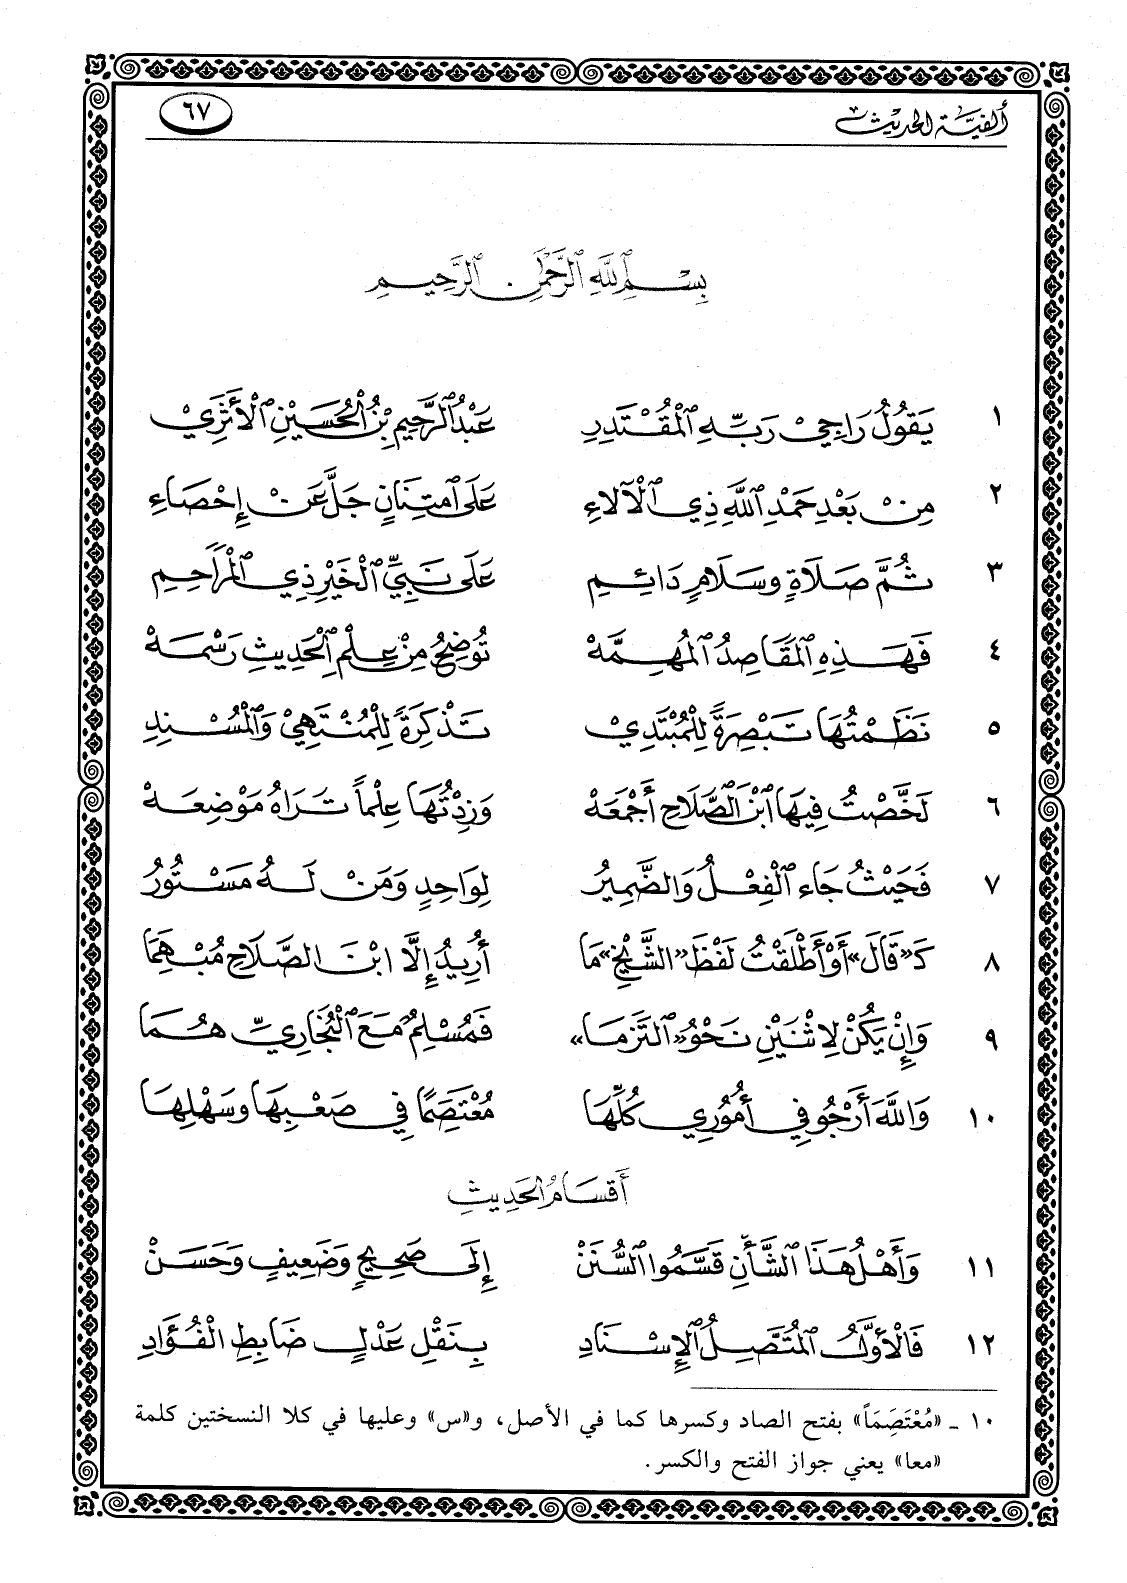 ألفية الحديث ٦٧
بِسْمِ ٱللَّهِ ٱلرَّحْمَٰنِ ٱلرَّحِيمِ
١ يَقُولُ رَاجِيْ رَبِّهِ ٱلْمُقْتَدِرِ عَبْدُ ٱلرَّحِيمِ بْنُ ٱلْحُسَيْنِ ٱلْأَثَرِيْ
٢ مِنْ بَعْدِ حَمْدِ ٱللَّهِ ذِي ٱلْآلَاءِ عَلَى ٱمْتِنَانٍ جَلَّ عَنْ إِحْصَاءِ
٣ ثُمَّ صَلَاةٍ وَسَلَامٍ دَائِمِ عَلَى نَبِيِّ ٱلْخَيْرِ ذِي ٱلْمَرَاحِمِ
٤ فَهَذِهِ ٱلْمَقَاصِدُ ٱلْمُهِمَّهْ تُوَضِحُ مِنْ عِلْمِ ٱلْحَدِيثِ رَسْمَهْ
٥ نَظَمْتُهَا تَبْصِرَةً لِلْمُبْتَدِيْ تَذْكِرَةً لِلْمُنْتَهِيْ وَٱلْمُسْنِدِ
٦ لَخَّصْتُ فِيهَا ٱبْنَ ٱلصَّلَاحِ أَجْمَعَهْ وَزِدْتُهَا عِلْماً تَرَاهُ مَوْضِعَهْ
٧ فَحَيْثُ جَاءَ ٱلْفِعْلُ وَالضَّمِيرُ لِوَاحِدٍ وَمَنْ لَهُ مَسْتُورُ
٨ كَـ«قَالَ» أَوْ أَطْلَقْتُ لَفْظَ «الشَّيْخِ» مَا أُرِيدُ إِلَّا ابْنَ الصَّلَاحِ مُبْهِمَا
٩ وَإِنْ يَكُنْ لِاثْنَيْنِ نَحْوُ «الْتَزَمَا» فَمُسْلِمٌ مَعَ ٱلْبُخَارِيِّ هُمَا
١٠ وَاللَّهَ أَرْجُو فِي أُمُورِي كُلِّهَا مُعْتَصَِمًا فِي صَعْبِهَا وَسَهْلِهَا
أَقْسَامُ الْحَدِيثِ
١١ وَأَهْلُ هَذَا ٱلشَّأْنِ قَسَّمُوا ٱلسُّنَنْ إِلَى صَحِيحٍ وَضَعِيفٍ وَحَسَنْ
١٢ فَالْأَوَّلُ ٱلْمُتَّصِلُ ٱلْإِسْنَادِ بِنَقْلِ عَدْلٍ ضَابِطِ الْفُؤَادِ
١٠ ـ «مُعْتَصَِمَاً» بفتح الصاد وكسرها كما في الأصل، و«س» وعليها في كلا النسختين كلمة
«معا» يعني جواز الفتح والكسر.